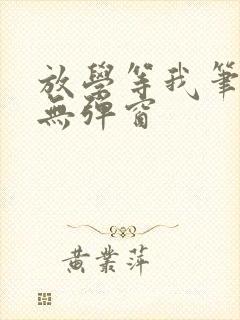 放學等我筆
無彈窗
黃業萍